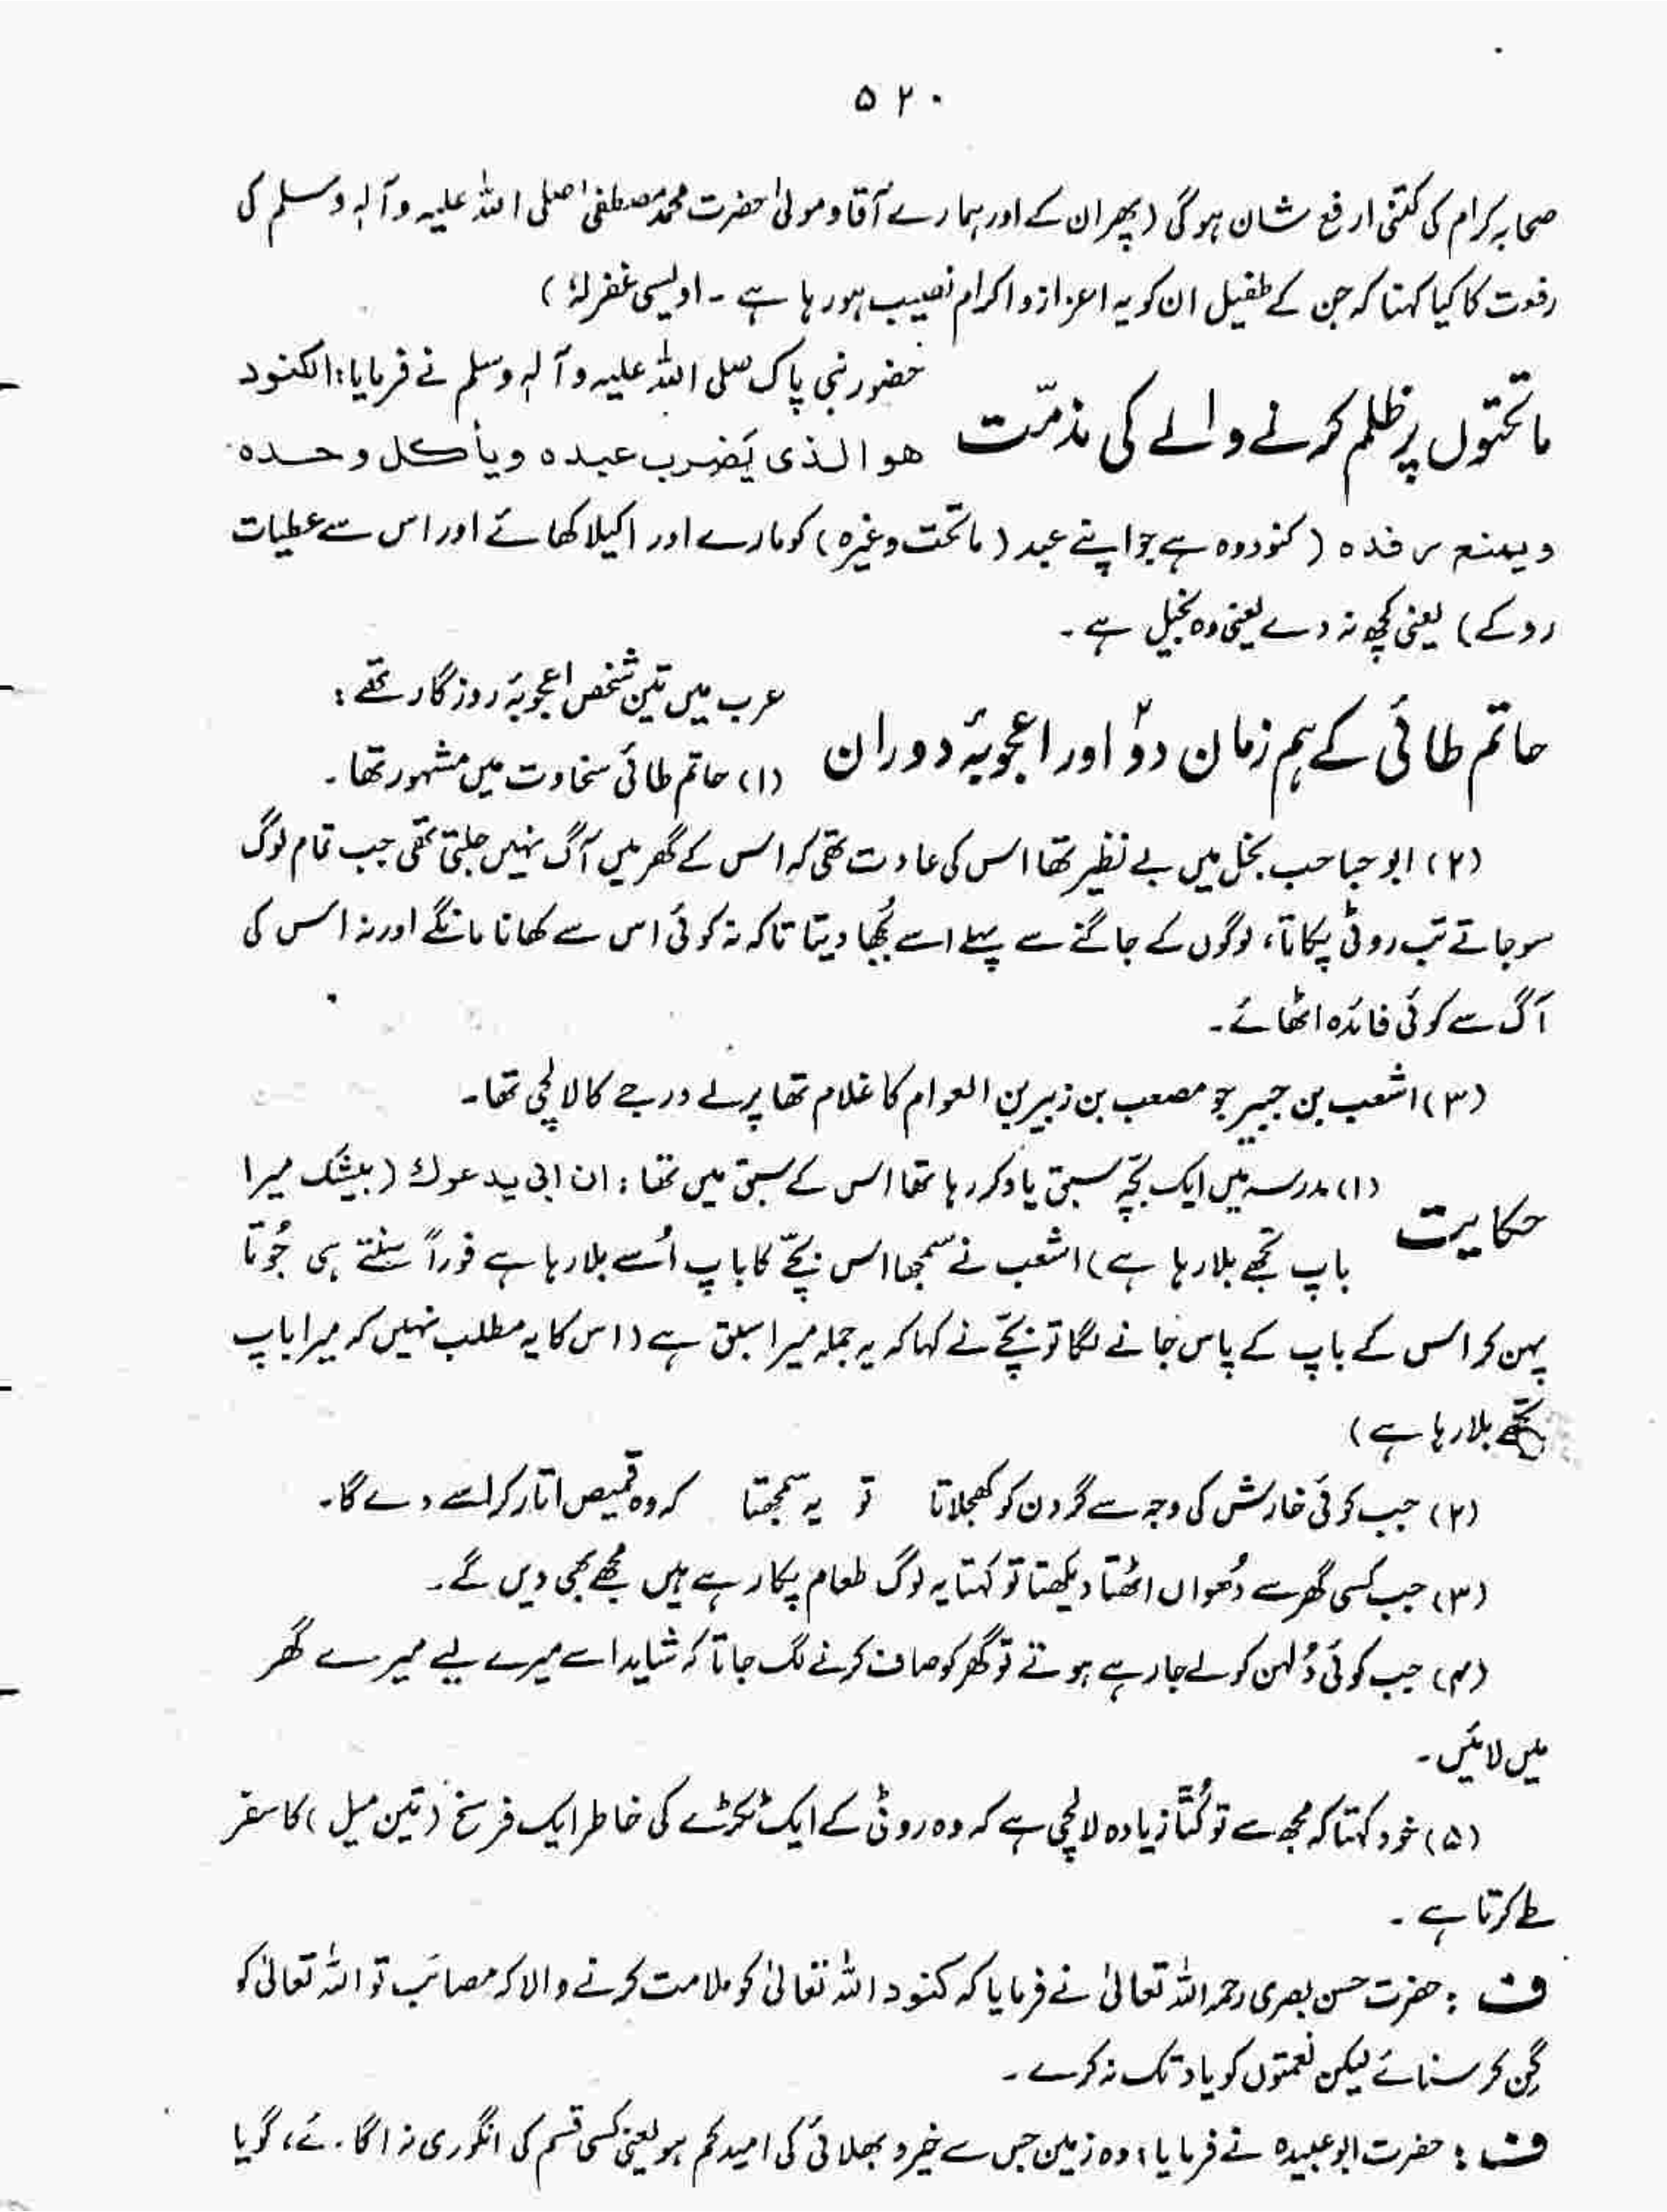 ۵۲۰
صحابہ کرام کی کتنی ارفع شان ہوگی (پھر ان کے اور ہمارے آقا و مولیٰ حضرت محمد مصطفیٰ صلی اللہ علیہ وآلہٖ وسلم کی
رفعت کا کیا کہنا کہ جن کے طفیل ان کو یہ اعزاز و اکرام نصیب ہو رہا ہے ۔ اویسی غفرلہٗ)
ماتحتوں پر ظلم کرنے والے کی مذمّت
حضور نبی پاک صلی اللہ علیہ وآلہٖ وسلم نے فرمایا: الکنود
ھو الذی یَضرب عبدہ ویأکل وحدہ
ویمنع رفدہ (کنود وہ ہے جو اپنے عبد (ماتحت وغیرہ) کو مارے اور اکیلا کھائے اور اس سے عطیات
روکے) یعنی کچھ نہ دے یعنی وہ بخیل ہے ۔
حاتم طائی کے ہم زمان دو۲ اور اعجوبۂ دوران
عرب میں تین شخص اعجوبۂ روزگار تھے :
(۱) حاتم طائی سخاوت میں مشہور تھا ۔
(۲) ابو حباحب بخل میں بے نظیر تھا اس کی عادت تھی کہ اس کے گھر میں آگ نہیں جلتی تھی جب تمام لوگ
سو جاتے تب روٹی پکاتا، لوگوں کے جاگنے سے پہلے اسے بُجھا دیتا تاکہ نہ کوئی اس سے کھانا مانگے اور نہ اس کی
آگ سے کوئی فائدہ اٹھائے ۔
(۳) اشعب بن جبیر جو مصعب بن زبیر بن العوام کا غلام تھا پرلے درجے کا لالچی تھا ۔
حکایت
(۱) مدرسہ میں ایک بچّہ سبق یاد کر رہا تھا اس کے سبق میں تھا : ان ابی یدعوك (بیشک میرا
باپ تجھے بلا رہا ہے) اشعب نے سمجھا اس بچّے کا باپ اُسے بلا رہا ہے فوراً سنتے ہی جُوتا
پہن کر اس کے باپ کے پاس جانے لگا تو بچّے نے کہا کہ یہ جملہ میرا سبق ہے (اس کا یہ مطلب نہیں کہ میرا باپ
تجھے بلا رہا ہے)
(۲) جب کوئی خارش کی وجہ سے گردن کو کھجلاتا تو یہ سمجھتا کہ وہ قمیص اتار کر اسے دے گا۔
(۳) جب کسی گھر سے دُھواں اٹھتا دیکھتا تو کہتا یہ لوگ طعام پکا رہے ہیں مجھے بھی دیں گے ۔
(۴) جب کوئی دُلہن کو لے جا رہے ہوتے تو گھر کو صاف کرنے لگ جاتا کہ شاید اسے میرے لیے میرے گھر
میں لائیں ۔
(۵) خود کہتا کہ مجھ سے تو کُتّا زیادہ لالچی ہے کہ وہ روٹی کے ایک ٹکڑے کی خاطر ایک فرسخ (تین میل) کا سفر
طے کرتا ہے ۔
ف : حضرت حسن بصری رحمہ اللہ تعالیٰ نے فرمایا کہ کنود اللہ تعالیٰ کو ملامت کرنے والا کہ مصائب تو اللہ تعالیٰ کو
گِن کر سنائے لیکن نعمتوں کو یاد تک نہ کرے ۔
ف : حضرت ابوعبیدہ نے فرمایا : وہ زمین جس سے خیر و بھلائی کی امید کم ہو یعنی کسی قسم کی انگوری نہ اگائے، گویا